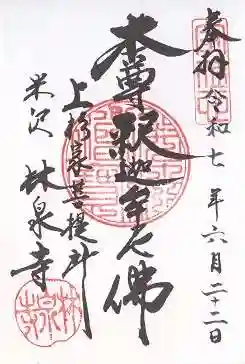 奉拝 令和七年六月二十二日
本尊釈迦牟尼佛
上杉家菩提所
米沢 林泉寺